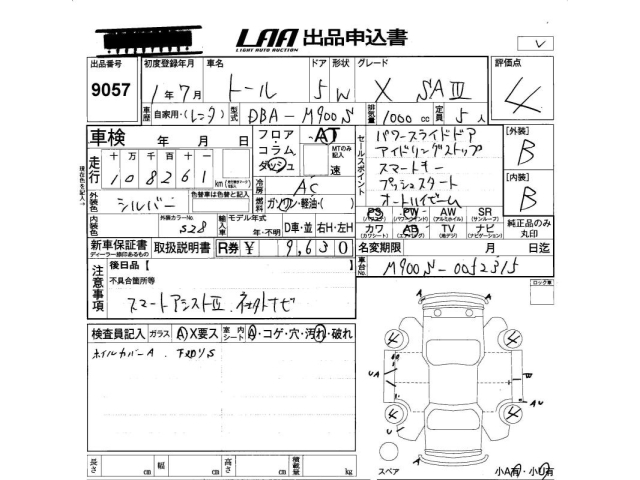 LAA 出品申込書
LIGHT AUTO AUCTION
出品番号 初度登録年月 車名 ドア 形状 グレード 評価点
9057 1年7月 トール 5 W X SAⅢ 4
車歴 自家用・(レンタ) 型式 DBA-M900S 排気量 1000 cc 定員 5人
車検 年 月 日 フロア・コラム・ダッシュ AT MTのみ記入 速
走行 十万千百十 108261 km
冷房 AC
セールスポイント
パワースライドドア
アイドリングストップ
スマートキー
プッシュスタート
オートハイビーム
[外装] B
[内装] B
外装色 シルバー 色替車は色替と記入 燃料 ガソリン・軽油・( )
PS PW AW SR
(パワステ) (パワーウインド) (アルミホイル) (サンルーフ)
カワ AB TV ナビ
(カワシート) (エアバッグ) (地デジ) (ナビゲーション)
純正品のみ丸印
内装色 外装カラーNo. S28 輸入車 モデル年式 年・不明 D車・並 右H・左H
新車保証書 取扱説明書 R券 ¥ 9,630 名変期限 月 日迄
ディーラー捺印あるもの
車台No. M900S-0052315
注意事項 後日品【
不具合箇所等
スマートアシストⅢ
ロック車
検査員記入 ガラス Ⓐ X要ス 室内シート Ⓐ・コゲ・穴・汚れ・破れ
ホイルカバーA
長さ cm 幅 cm 高さ cm 積載量 kg
スペア
小A有・小U有